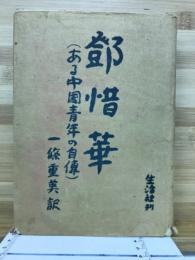 鄧惜華
(ある中國青年の自傳)
一條重英訳
生活社刊